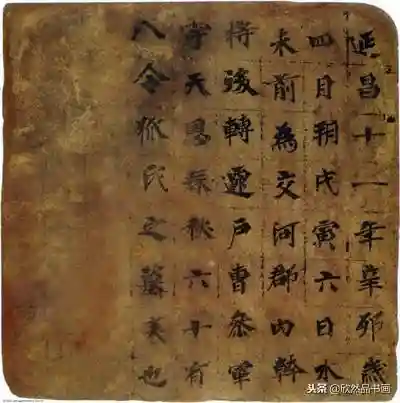 延昌十一年辛卯歲
四月朔戊寅六日水
未前為交河郡內幹
將後轉遷戶曹參軍
字天恩春秋六十有
八令狐氏之墓表也
头条 @欣然品书画